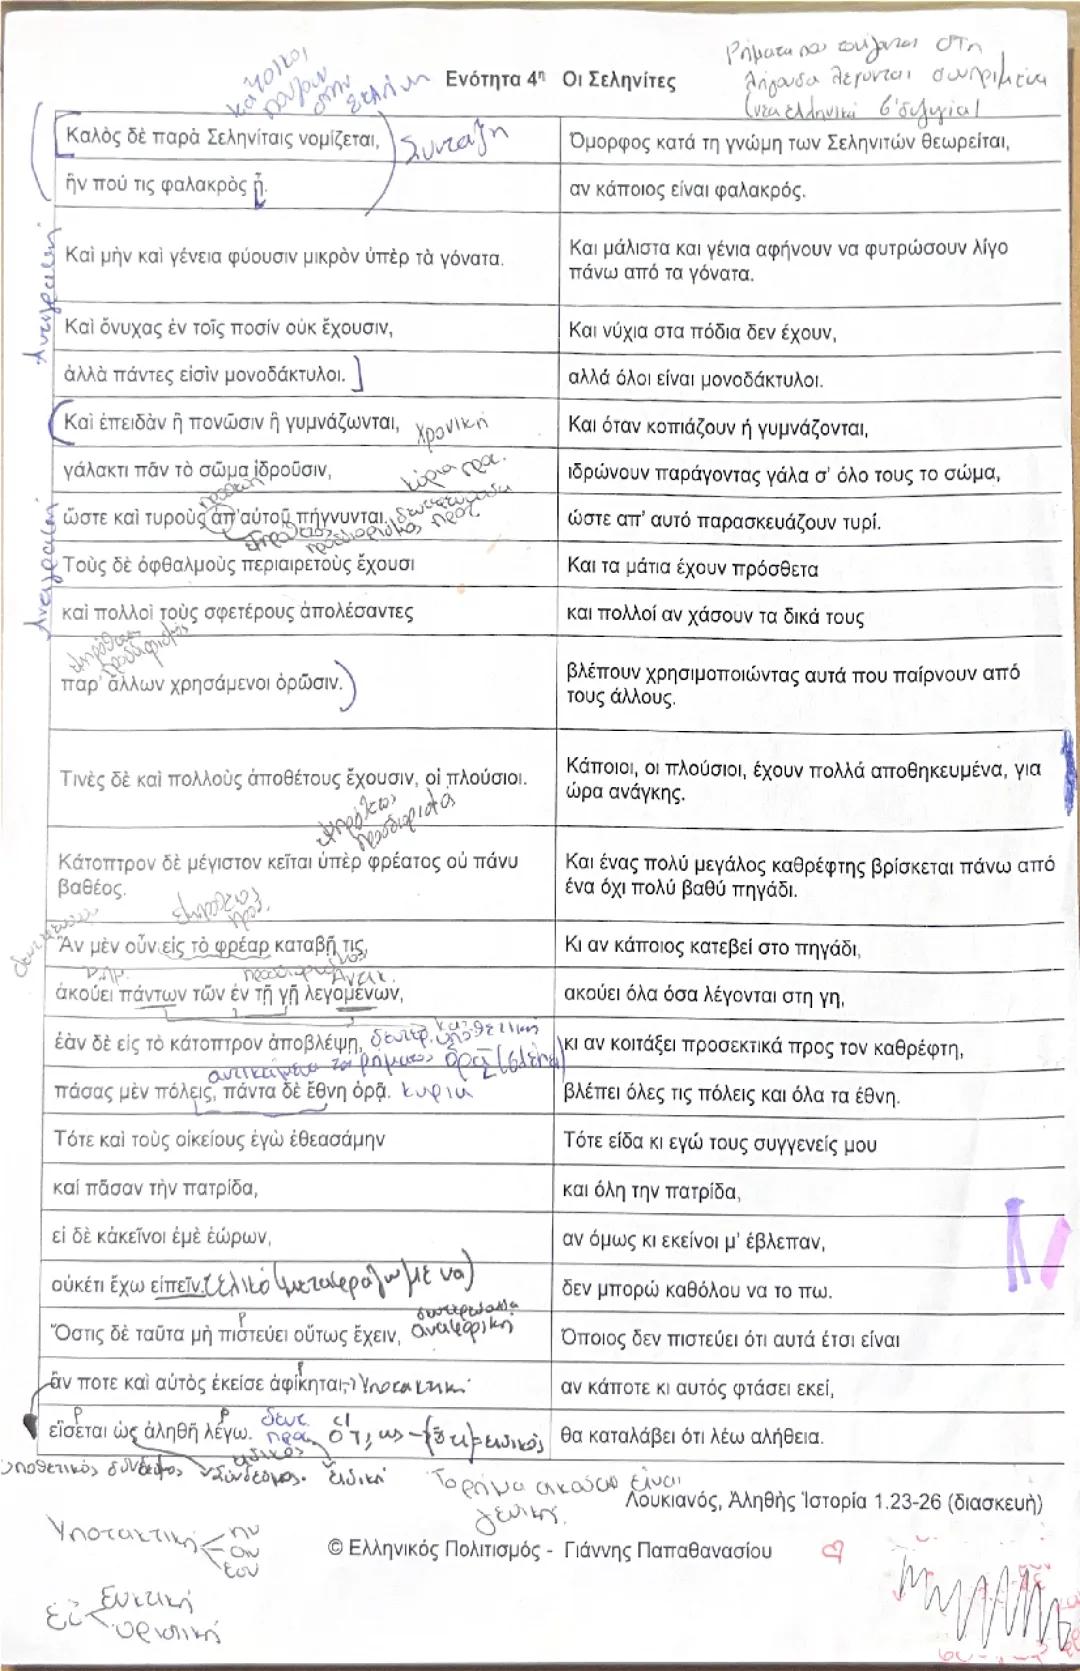 κάτοικοι
στην
Σελήνη
Ρήματα που τονίζονται στη
λήγουσα λέγονται συνηρημένα
(νέα ελληνικά β' συζυγία)
Ενότητα 4η Οι Σεληνίτες
Καλὸς δὲ παρὰ Σεληνίταις νομίζεται,
Σύνταξη
Όμορφος κατά τη γνώμη των Σεληνιτών θεωρείται,
ἤν πού τις φαλακρὸς ᾖ.
αν κάποιος είναι φαλακρός.
Καὶ μὴν καὶ γένεια φύουσιν μικρὸν ὑπὲρ τὰ γόνατα.
Και μάλιστα και γένια αφήνουν να φυτρώσουν λίγο
πάνω από τα γόνατα.
Καὶ ὄνυχας ἐν τοῖς ποσίν οὐκ ἔχουσιν,
Και νύχια στα πόδια δεν έχουν,
ἀλλὰ πάντες εἰσὶν μονοδάκτυλοι.
αλλά όλοι είναι μονοδάκτυλοι.
Καὶ ἐπειδὰν ἢ πονῶσιν ἢ γυμνάζωνται,
χρονική
Και όταν κοπιάζουν ή γυμνάζονται,
γάλακτι πᾶν τὸ σῶμα ἱδροῦσιν,
κύρια προτ.
ιδρώνουν παράγοντας γάλα σ' όλο τους το σώμα,
πρόθεση
ὥστε καὶ τυροὺς ἀπ' αὐτοῦ πήγνυνται.
δευτερεύουσα
προτ.
ώστε απ' αυτό παρασκευάζουν τυρί.
εμπρόθετος
προσδιορισμός
Τοὺς δὲ ὀφθαλμοὺς περιαιρετοὺς ἔχουσι
Και τα μάτια έχουν πρόσθετα
καὶ πολλοὶ τοὺς σφετέρους ἀπολέσαντες
και πολλοί αν χάσουν τα δικά τους
εμπρόθετος
προσδιορισμός
παρ' ἄλλων χρησάμενοι ὁρῶσιν.
βλέπουν χρησιμοποιώντας αυτά που παίρνουν από
τους άλλους.
Τινὲς δὲ καὶ πολλοὺς ἀποθέτους ἔχουσιν, οἱ πλούσιοι.
Κάποιοι, οι πλούσιοι, έχουν πολλά αποθηκευμένα, για
ώρα ανάγκης.
Κάτοπτρον δὲ μέγιστον κεῖται ὑπὲρ φρέατος οὐ πάνυ
βαθέος.
Και ένας πολύ μεγάλος καθρέφτης βρίσκεται πάνω από
ένα όχι πολύ βαθύ πηγάδι.
Ἂν μὲν οὖν εἰς τὸ φρέαρ καταβῇ τις,
Κι αν κάποιος κατεβεί στο πηγάδι,
ἀκούει πάντων τῶν ἐν τῇ γῇ λεγομένων,
ακούει όλα όσα λέγονται στη γη,
ἐὰν δὲ εἰς τὸ κάτοπτρον ἀποβλέψῃ,
δευτερ. υποθετική
κι αν κοιτάξει προσεκτικά προς τον καθρέφτη,
αντικείμενα του ρήματος ὁρᾷ (βλέπει)
πάσας μὲν πόλεις, πάντα δὲ ἔθνη ὁρᾷ.
κύρια
βλέπει όλες τις πόλεις και όλα τα έθνη.
Τότε καὶ τοὺς οἰκείους ἐγὼ ἐθεασάμην
Τότε είδα κι εγώ τους συγγενείς μου
καί πᾶσαν τὴν πατρίδα,
και όλη την πατρίδα,
εἰ δὲ κἀκεῖνοι ἐμὲ ἑώρων,
αν όμως κι εκείνοι μ' έβλεπαν,
οὐκέτι ἔχω εἰπεῖν.
τελικό (μεταφράζω με να)
δεν μπορώ καθόλου να το πω.
Ὅστις δὲ ταῦτα μὴ πιστεύει οὕτως ἔχειν,
δευτερεύουσα
αναφορική
Όποιος δεν πιστεύει ότι αυτά έτσι είναι
ἄν ποτε καὶ αὐτὸς ἐκεῖσε ἀφίκηται,
Υποτακτική
αν κάποτε κι αυτός φτάσει εκεί,
εἴσεται ὡς ἀληθῆ λέγω.
δευτ.
θα καταλάβει ότι λέω αλήθεια.
υποθετικός σύνδεσμος
σύνδεσμος
ειδική
Το ρήμα ακούω είναι
γενική.
Λουκιανός, Ἀληθὴς Ἱστορία 1.23-26 (διασκευή)
Υποτακτική
ην
αν
εαν
© Ελληνικός Πολιτισμός - Γιάννης Παπαθανασίου
Ει
Ευκτική
οριστική